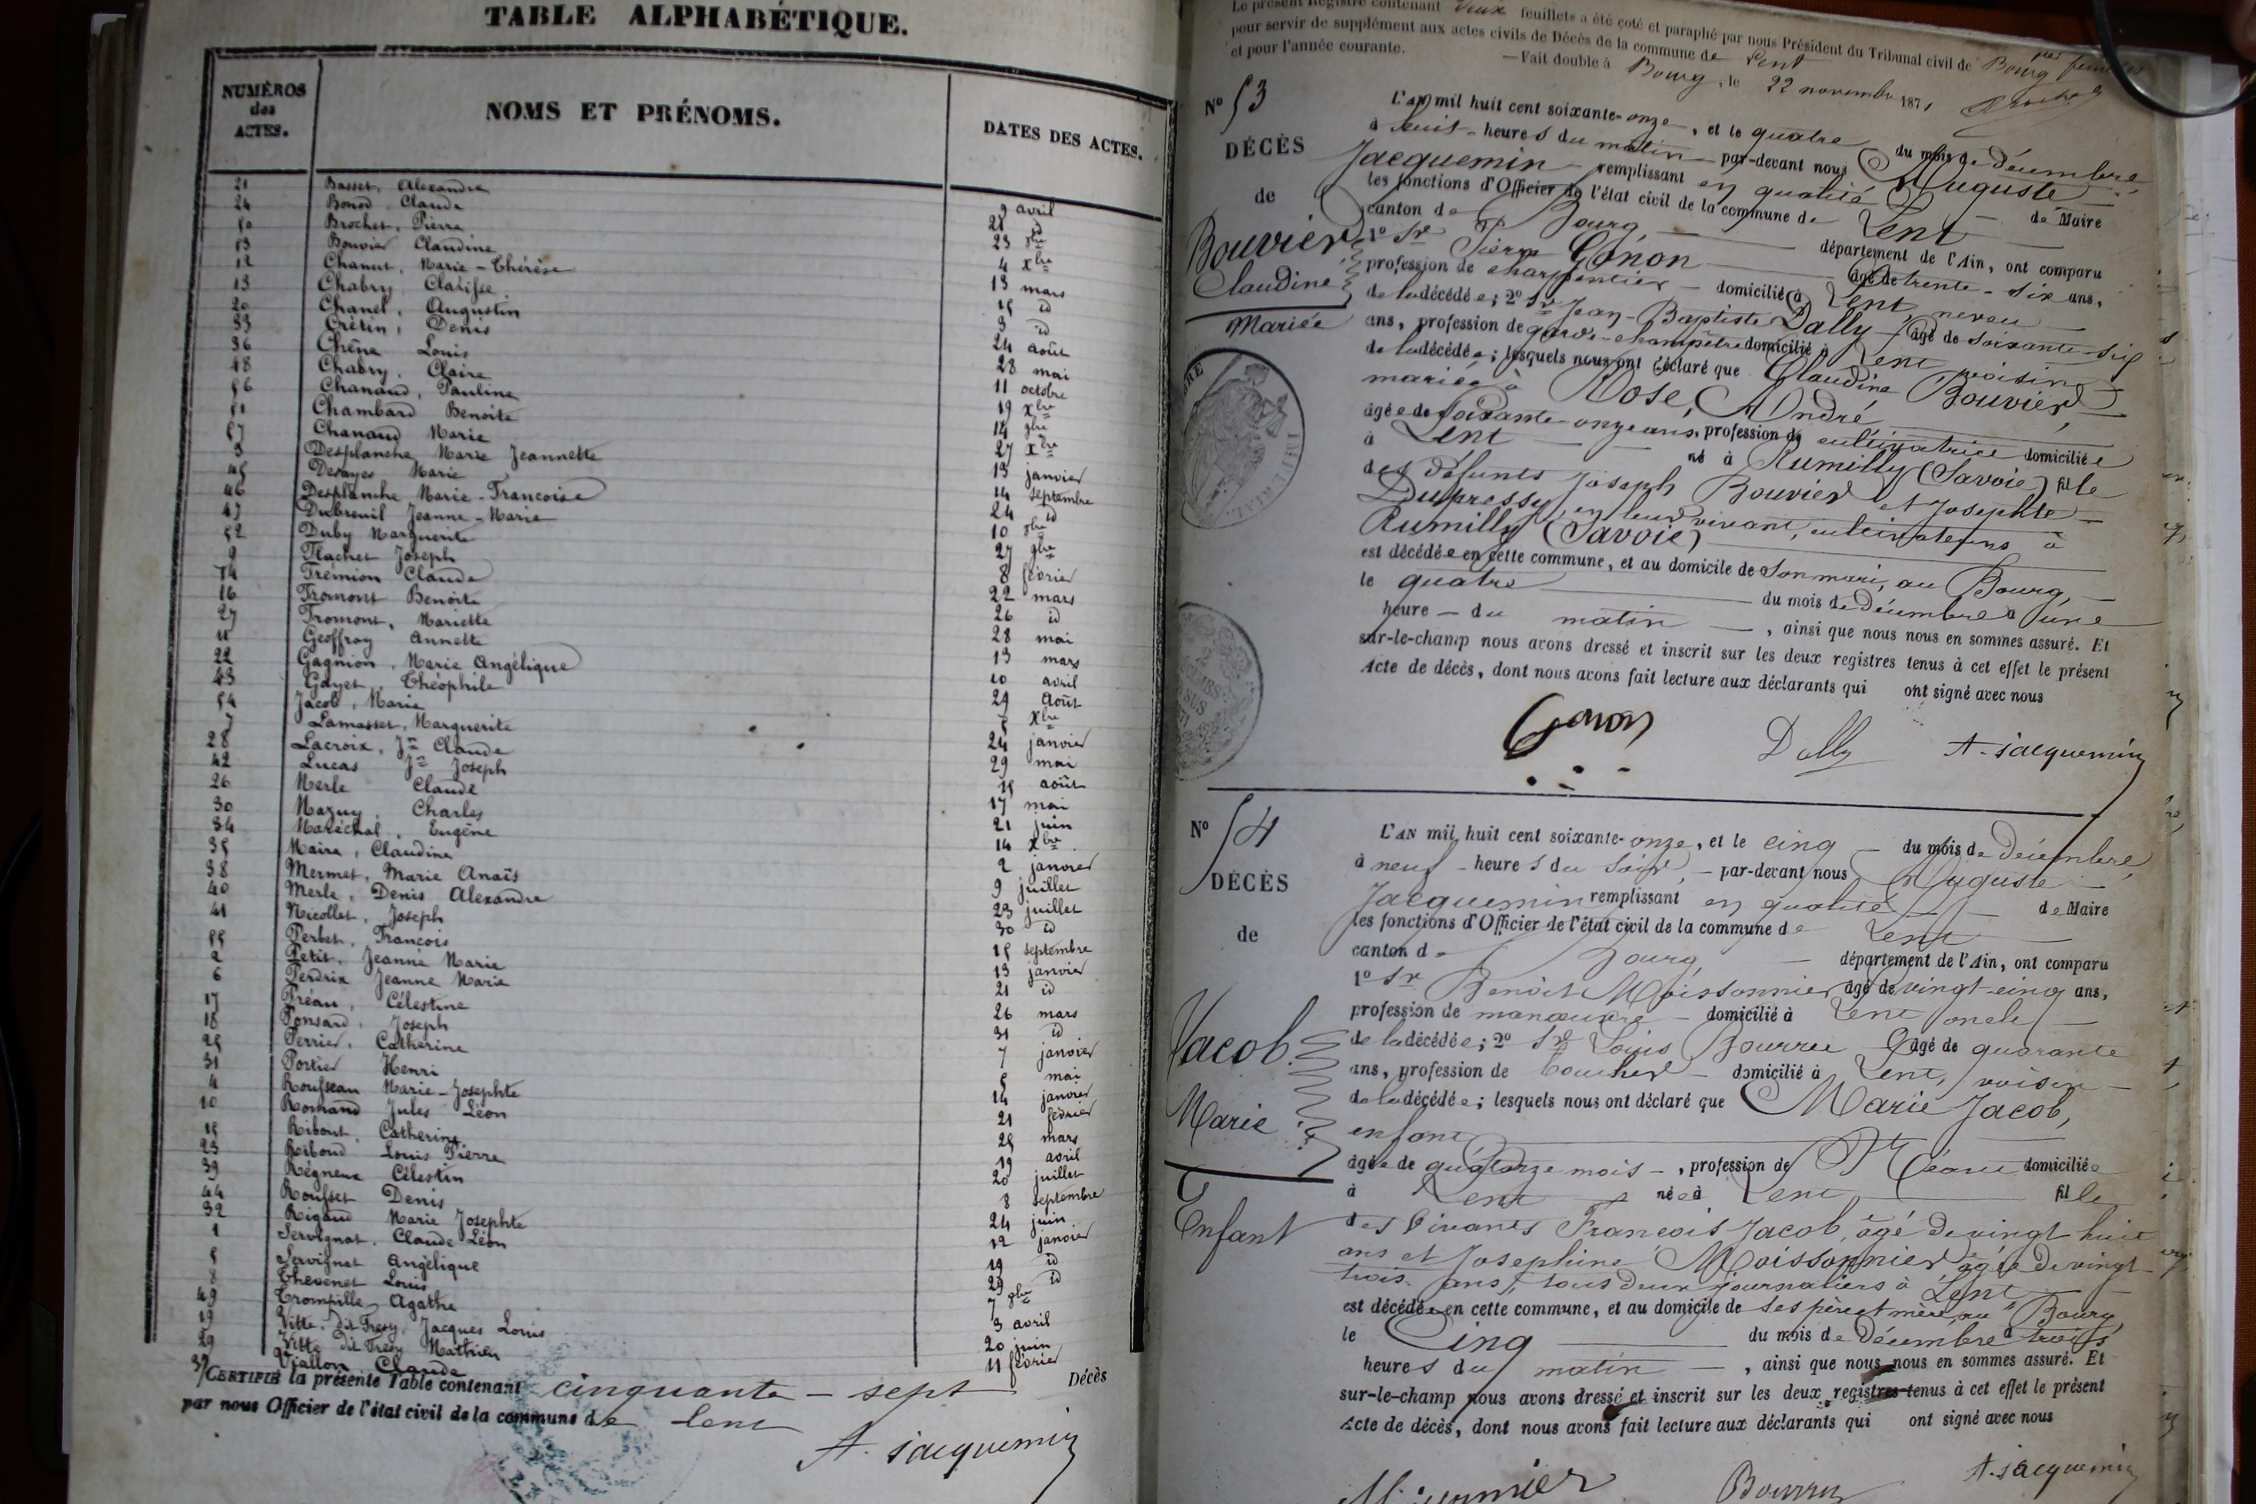 TABLE ALPHABÉTIQUE.
NUMÉROS des ACTES. NOMS ET PRÉNOMS. DATES DES ACTES.
21 Basset, Alexandre 9 avril
24 Bonod Claude 28 id
50 Brochet, Pierre 23 8bre
53 Bouvier Claudine 4 Xbre
12 Chanut, Marie-Thérèse 13 mars
13 Chabry Clarisse 15 id
20 Chanel, Augustin 3 id
33 Crétin, Denis 24 août
36 Chêne Louis 28 mai
48 Chabry, Claire 11 octobre
56 Chanaud, Pauline 19 Xbre
51 Chambard Benoite 14 9bre
57 Chanaud Marie 27 Xbre
3 Desplanche Marie Jeannette 13 janvier
45 Desayes Marie 14 septembre
46 Desplanche Marie-Françoise 24 id
47 Dubreuil Jeanne-Marie 10 8bre
52 Duby Marguerite 27 9bre
9 Flachet Joseph 8 février
14 Frémion Claude 22 mars
16 Fromont Benoite 26 id
27 Fromont, Mariette 28 mai
11 Geoffray Annette 13 mars
22 Gagnion, Marie Angélique 10 avril
43 Gayet, Théophile 29 août
54 Jacob, Marie 5 Xbre
7 Lamasset, Marguerite 24 janvier
28 Lacroix, Jn Claude 29 mai
42 Lucas Jn Joseph 15 août
26 Merle Claude 17 mai
30 Mazuy, Charles 21 juin
34 Maréchal, Eugène 14 Xbre
35 Maire, Claudine 2 janvier
38 Mermet, Marie Anaïs 9 juillet
40 Merle, Denis Alexandre 23 juillet
41 Nicollet, Joseph 30 id
55 Perbet, François 15 septembre
2 Petit, Jeanne Marie 13 janvier
6 Perdrix Jeanne Marie 21 id
17 Préau, Célestine 26 mars
18 Ponsard, Joseph 31 id
25 Perrier, Catherine 7 janvier
31 Portier Henri 5 mai
4 Rousseau Marie-Josephte 14 janvier
10 Romand Jules Léon 21 février
15 Ribout, Catherine 25 mars
23 Riboud Louis Pierre 19 avril
39 Régneux Célestin 20 juillet
44 Rousset Denis 8 septembre
32 Rigaud Marie Josephte 24 juin
1 Servignat, Claude Léon 12 janvier
5 Servignat Angélique 19 id
8 Thevenet Louis 29 id
49 Trompille, Agathe 7 8bre
19 Vitte, dit Tresy, Jacques Louis 3 avril
29 Vitte dit Tresy Mathieu 20 juin
37 Viallon Claude 11 février
CERTIFIÉ la présente Table contenant cinquante-sept Décès
par nous Officier de l'état civil de la commune de Lent
A. Jacquemin
Le présent Registre contenant deux feuillets a été coté et paraphé par nous Président du Tribunal civil de Bourg
pour servir de supplément aux actes civils de Décès de la commune de Lent
et pour l'année courante. — Fait double à Bourg, le 22 novembre 1871
No 53
DÉCÈS
de
Bouvier
Claudine
Mariée
L'AN mil huit cent soixante-onze, et le quatre du mois de Décembre,
à huit heures du matin par-devant nous Auguste
Jacquemin remplissant en qualité de Maire
les fonctions d'Officier de l'état civil de la commune de Lent
canton de Bourg, département de l'Ain, ont comparu
1o Sr Pierre Gonon âgé de trente-six ans,
profession de charpentier domicilié à Lent, neveu
de la décédée; 2o Sr Jean-Baptiste Dally âgé de soixante-six
ans, profession de garde-champêtre domicilié à Lent voisin
de la décédée; lesquels nous ont déclaré que Claudine Bouvier,
mariée à Rose, André,
âgée de soixante-onze ans, profession de cultivatrice domiciliée
à Lent né à Rumilly (Savoie) fille
des défunts Joseph Bouvier et Josephte
Dupressy, en leur vivant, cultivateurs à
Rumilly (Savoie)
est décédée en cette commune, et au domicile de son mari, au Bourg,
le quatre du mois de Décembre à une
heure du matin, ainsi que nous nous en sommes assuré. Et
sur-le-champ nous avons dressé et inscrit sur les deux registres tenus à cet effet le présent
Acte de décès, dont nous avons fait lecture aux déclarants qui ont signé avec nous
Gonon Dally A. Jacquemin
No 54
DÉCÈS
de
Jacob
Marie
Enfant
L'AN mil huit cent soixante-onze, et le cinq du mois de Décembre,
à neuf heures du soir, par-devant nous Auguste
Jacquemin remplissant en qualité de Maire
les fonctions d'Officier de l'état civil de la commune de Lent
canton de Bourg, département de l'Ain, ont comparu
1o Sr Benoit Moissonnier âgé de vingt-cinq ans,
profession de manœuvre domicilié à Lent oncle
de la décédée; 2o Sr Louis Bourru âgé de quarante
ans, profession de boucher domicilié à Lent, voisin
de la décédée; lesquels nous ont déclaré que Marie Jacob,
enfant
âgée de quatorze mois, profession de Néant domiciliée
à Lent née à Lent, fille
des vivants François Jacob, âgé de vingt huit
ans et Josephine Moissonnier âgée de vingt
trois ans, tous deux journaliers à Lent
est décédée en cette commune, et au domicile de ses père et mère, au Bourg,
le Cinq du mois de Décembre à trois
heures du matin, ainsi que nous nous en sommes assuré. Et
sur-le-champ nous avons dressé et inscrit sur les deux registres tenus à cet effet le présent
Acte de décès, dont nous avons fait lecture aux déclarants qui ont signé avec nous
Bourru A. Jacquemin